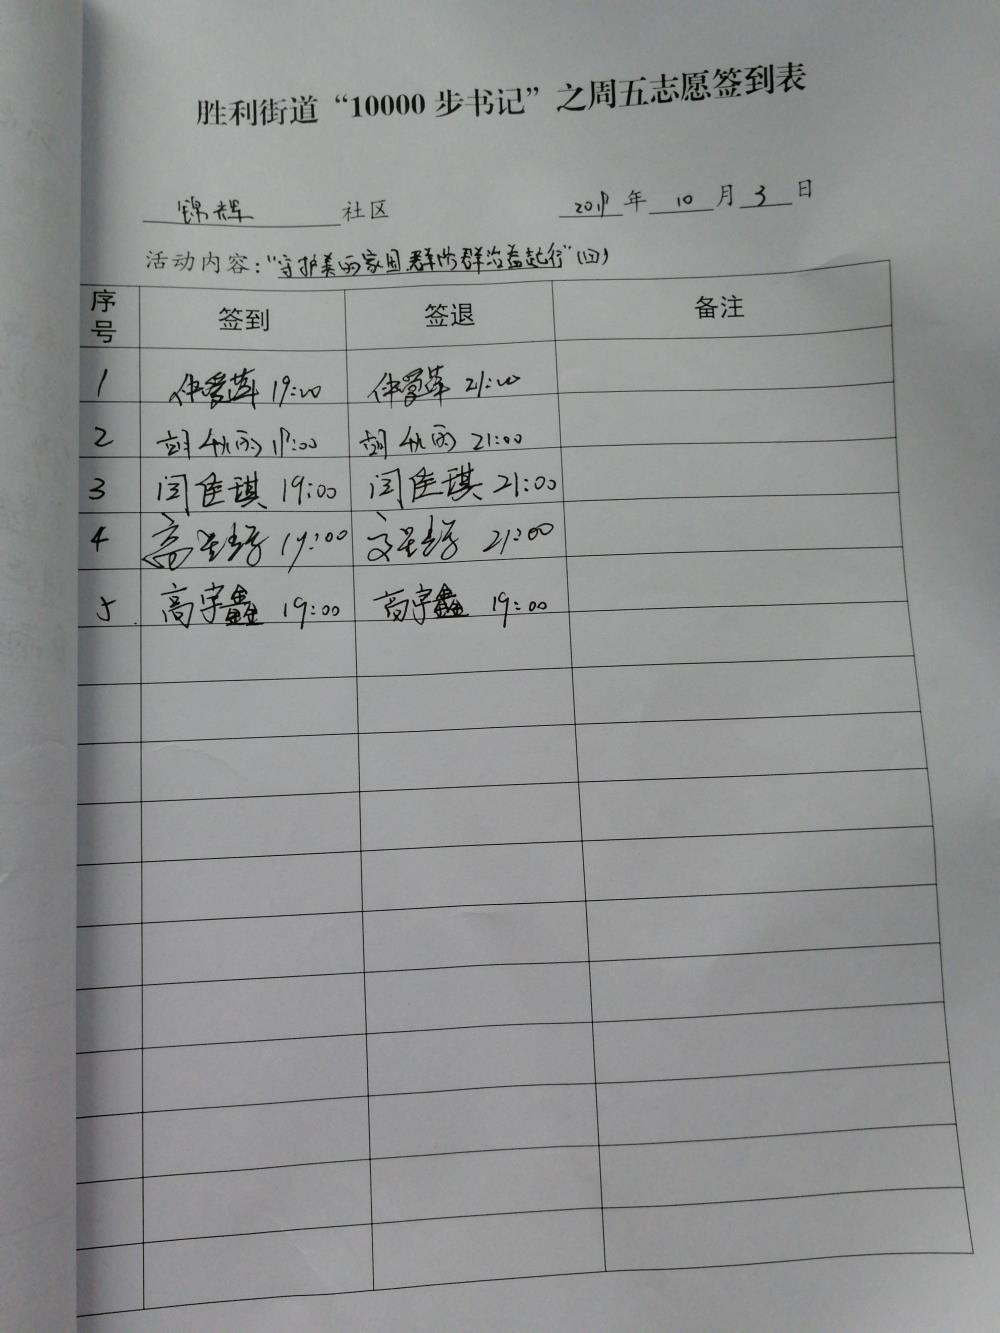 胜利街道“10000步书记”之周五志愿签到表
锦辉 社区 2019年 10 月 3 日
活动内容：“守护美丽家园 群防群治益起行”（四）
序号 签到 签退 备注
1 仲爱萍 19:00 仲爱萍 21:00
2 胡秋雨 19:00 胡秋雨 21:00
3 闫佳琪 19:00 闫佳琪 21:00
4 19:00 21:00
5 高宇鑫 19:00 高宇鑫 19:00